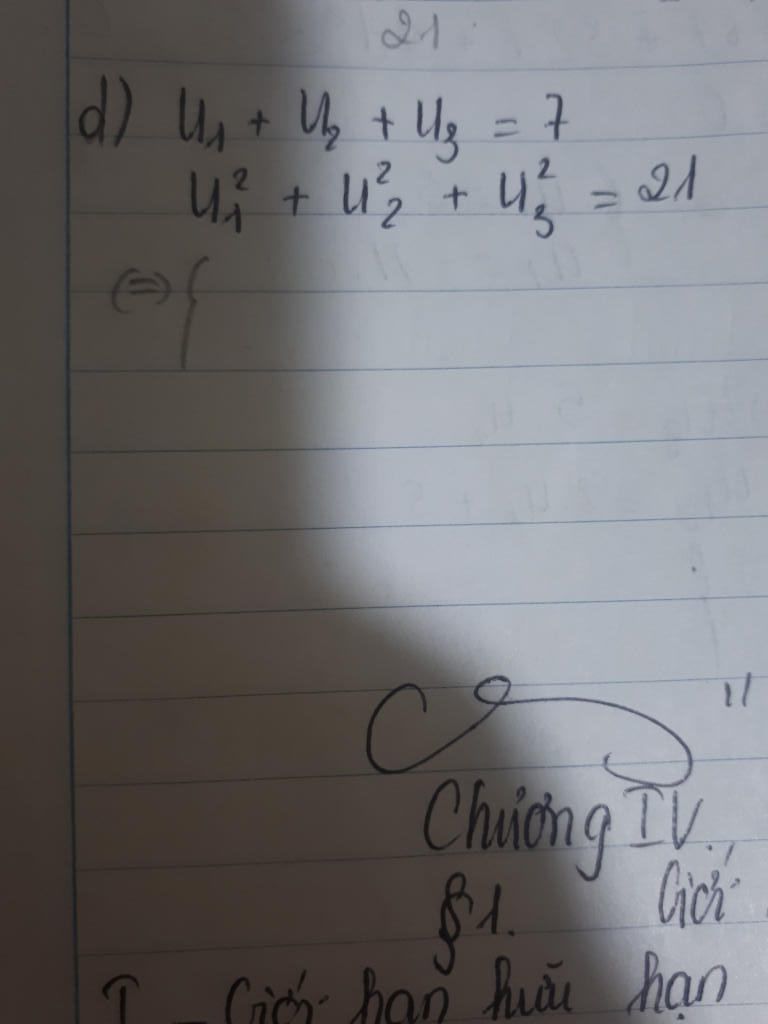 21
d) U₁ + U₂ + U₃ = 7
U₁² + U₂² + U₃² = 21
(=) {
"
Chương IV.
§1. Giới
I - Giới hạn hữu hạn